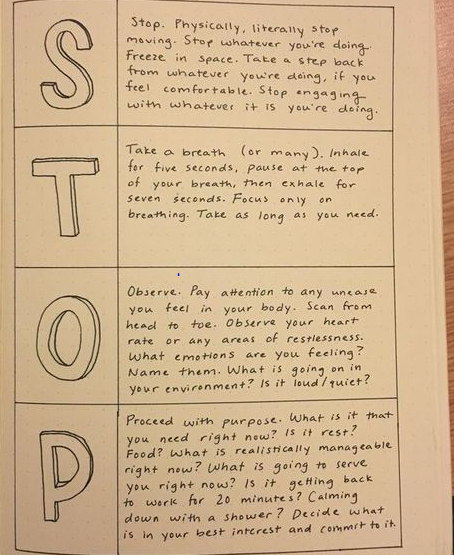 S
Stop. Physically, literally stop
moving. Stop whatever you're doing.
Freeze in space. Take a step back
from whatever you're doing, if you
feel comfortable. Stop engaging
with whatever it is you're doing.
T
Take a breath (or many). Inhale
for five seconds, pause at the top
of your breath, then exhale for
seven seconds. Focus only on
breathing. Take as long as you need.
O
Observe. Pay attention to any unease
you feel in your body. Scan from
head to toe. Observe your heart
rate or any areas of restlessness.
What emotions are you feeling?
Name them. What is going on in
your environment? Is it loud/quiet?
P
Proceed with purpose. What is it that
you need right now? Is it rest?
Food? What is realistically manageable
right now? What is going to serve
you right now? Is it getting back
to work for 20 minutes? Calming
down with a shower? Decide what
is in your best interest and commit to it.